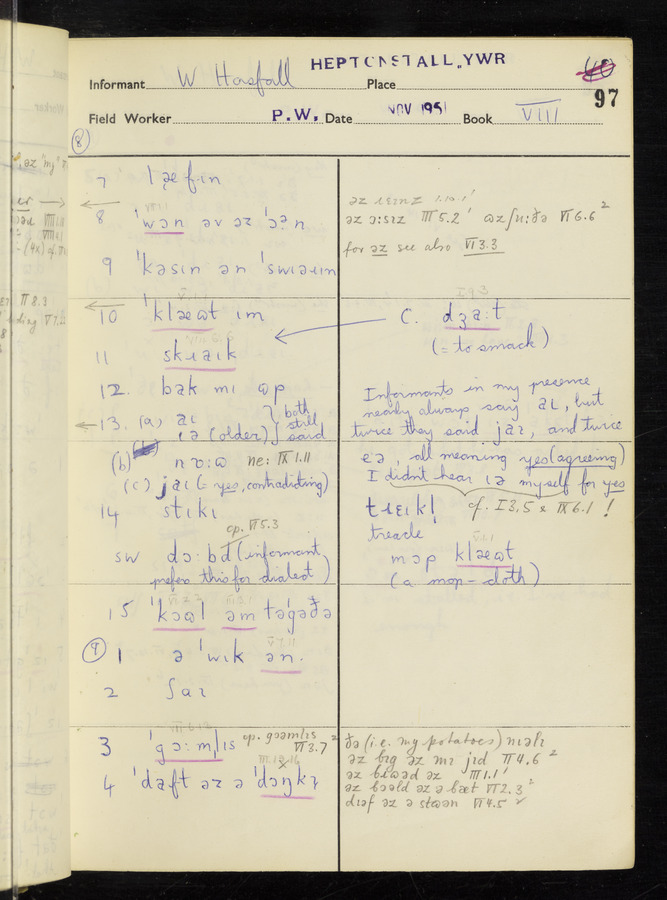 HEPTONSTALL, YWR
Informant W Horsfall Place
97
Field Worker P.W. Date NOV 1951 Book VIII
(8)
7 læfɪn
8 'wən əv əz 'ɔ:n
9 'kəsɪn ən 'swɪəɹɪn
10 'klæɷt ɪm
11 skɹaɪk
12. bak mɪ ɷp
13. (a) aɪ } both
ɪə (older) } still said
(b) nɒ:ɷ ne: IX 1.11
(c) jaɪ (= yes, contradicting)
14 stɪkɪ
cp. VI 5.3
sw dɔ:bd (informant
prefers this for dialect)
15 'kɔɷl əm təgəðə
(9) 1 ə 'wɪk ən.
2 ʃaɪ
3 'gɔ:mlɪs cp. gɔəmlɪs VI 3.7
4 'daft əz ə 'dɔŋkɪ
əz ɔ:sɪz III 5.2 ɷzʃɪl:ðə VI 6.6
for əz see also VI 3.3
I 9 3
C. dʒa:t
(= to smack)
Informants in my presence
nearly always say aɪ, but
twice they said jaɪ, and twice
eə, all meaning yes (agreeing)
I didn't hear ɪə myself for yes
tɹɛɪk! cf. I 3,5 & IX 6.1 !
treacle
mɔp klæɷt
(a mop-cloth)
ðə (i.e. my potatoes) nɪəlɪ
əz bɪg əz mɪ jɪd II 4.6
əz blɷəd əz III 1.1
əz bɔəld əz ə bæt VI 2.3
dɪəf əz ə stɷən VI 4.5